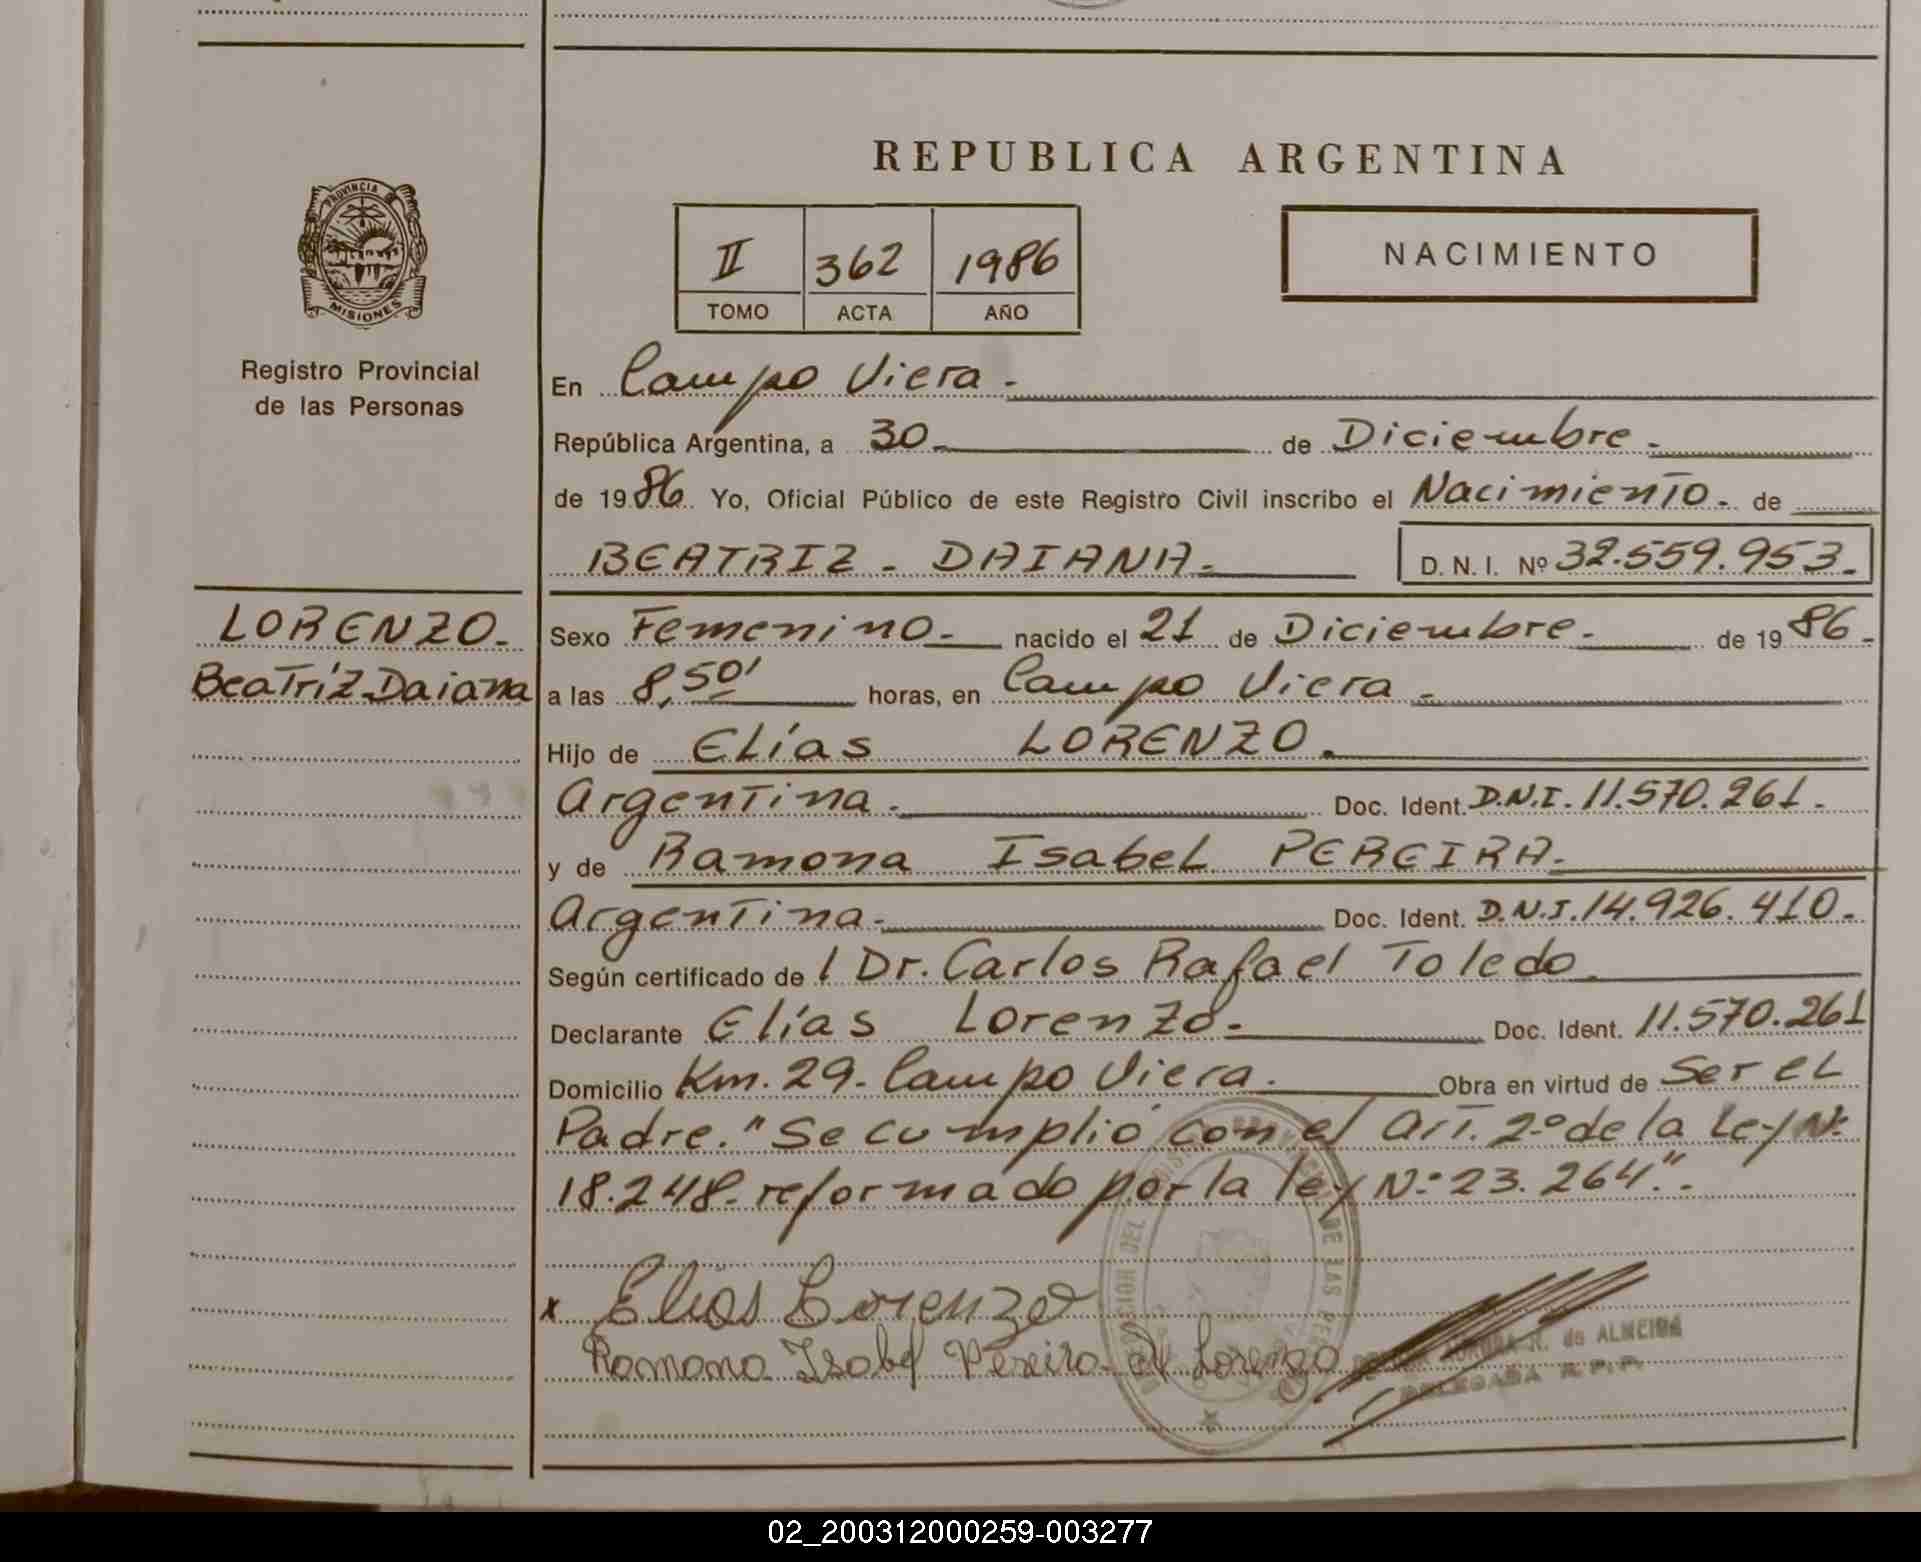 REPUBLICA ARGENTINA
PROVINCIA
MISIONES
Registro Provincial
de las Personas
II 362 1986
TOMO ACTA AÑO
NACIMIENTO
En Campo Viera.-
República Argentina, a 30- de Diciembre.-
de 1986. Yo, Oficial Público de este Registro Civil inscribo el Nacimiento.- de
BEATRIZ - DAIANA.- D. N. I. Nº 32.559.953.-
LORENZO.-
Beatriz Daiana
Sexo Femenino.- nacido el 21 de Diciembre.- de 1986.-
a las 8,50' horas, en Campo Viera.-
Hijo de Elías LORENZO.-
Argentina.- Doc. Ident. D.N.I. 11.570.261.-
y de Ramona Isabel PEREIRA.-
Argentina.- Doc. Ident. D.N.I. 14.926.410.-
Según certificado de l Dr. Carlos Rafael Toledo.
Declarante Elías Lorenzo.- Doc. Ident. 11.570.261
Domicilio Km. 29- Campo Viera.- Obra en virtud de ser el
Padre. "Se cumplió con el Art. 2º de la Ley Nº
18.248- reformado por la ley Nº 23.264".-
x Elias Lorenzo
Ramona Isabel Pereira de Lorenzo
N. de ALMEIDA
DELEGADA R.P.P.
02_200312000259-003277